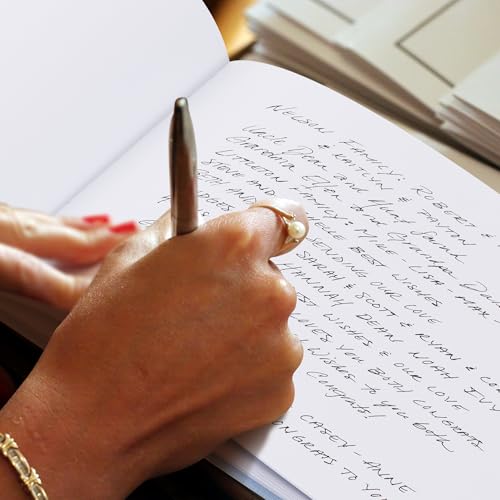 NELSON FAMILY: ROBERT
& KAITLYN & PAYTON
Uncle Dean and Aunt Sarah
Grandma Ellen and Grandpa Da
LITTLETON FAMILY: MIKE - LISA - MAX
STEVE AND BEST WISHES
BETH AND SENDING OUR LOVE
SARAH & SCOTT & RYAN & CO
HANNAH DEAN NOAH IVY
BEST WISHES & OUR LOVE
LOVES YOU BOTH CONGRATS
WISHES TO YOU both
Congrats!
CASEY - ANNE
CONGRATS TO YO